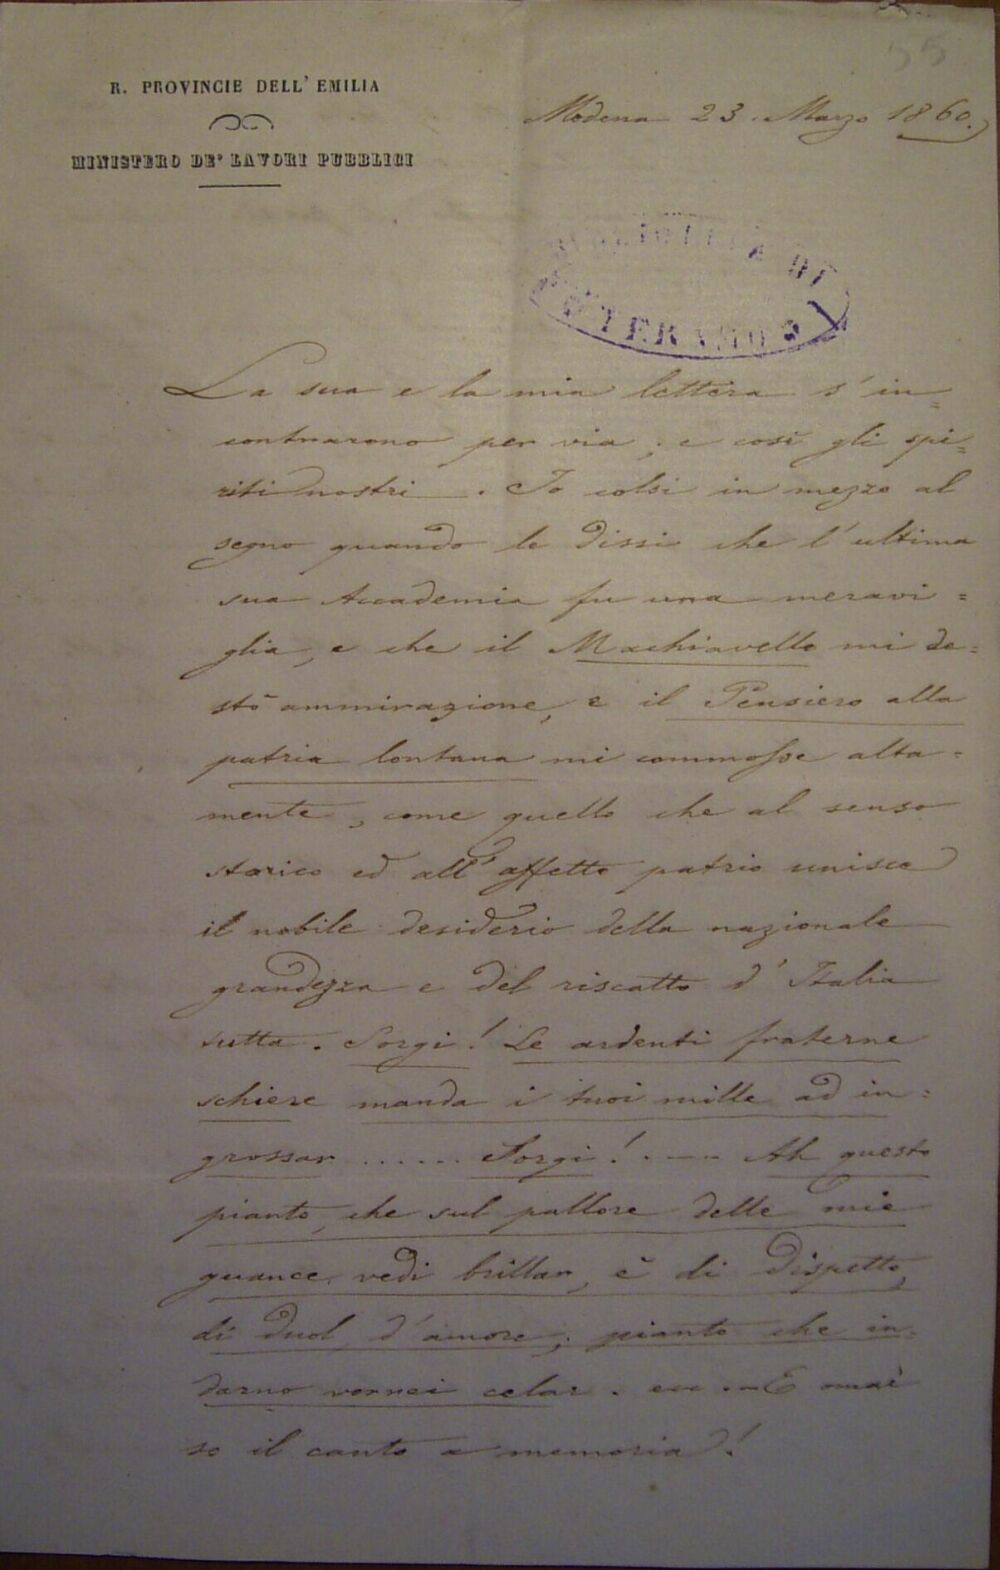 55
R. PROVINCIE DELL' EMILIA
MINISTERO DE' LAVORI PUBBLICI
Modena 23. Marzo 1860.
BIBLIOTECA DI
La sua e la mia lettera s'in=
contrarono per via, e così gli spi=
riti nostri. Io colsi in mezzo al
segno quando le dissi che l'ultima
sua Accademia fu una meravi=
glia, e che il Machiavello mi de=
stò ammirazione, e il Pensiero alla
patria lontana mi commosse alta=
mente, come quello che al senso
storico ed all'affetto patrio unisce
il nobile desiderio della nazionale
grandezza e del riscatto d'Italia
tutta. Sorgi! Le ardenti fraterne
schiere manda i tuoi mille ad in=
grossar ...... Sorgi! .... Ah questo
pianto, che sul pallore delle mie
guance vedi brillar, è di dispetto,
di duol, d'amore; pianto che in=
darno vorrei celar. ... E mai
so il canto a memoria!